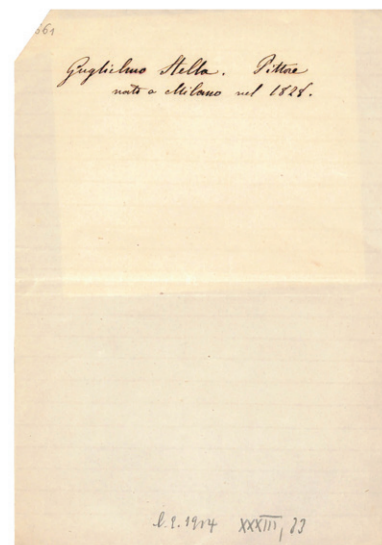 661
Guglielmo Stella. Pittore
nato a Milano nel 1828.
XXXIII, 23